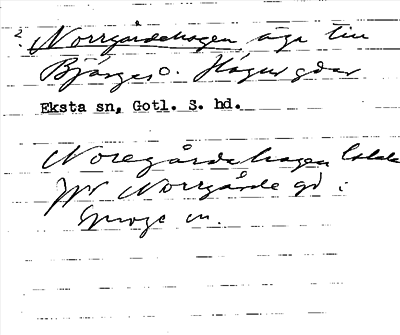 2. Norrgårdshagen äga till
Bjärges o. Hägur gdar
Eksta sn, Gotl. S. hd.
Noregårdshagen
NV Norrgårde gd i
Sproge sn.